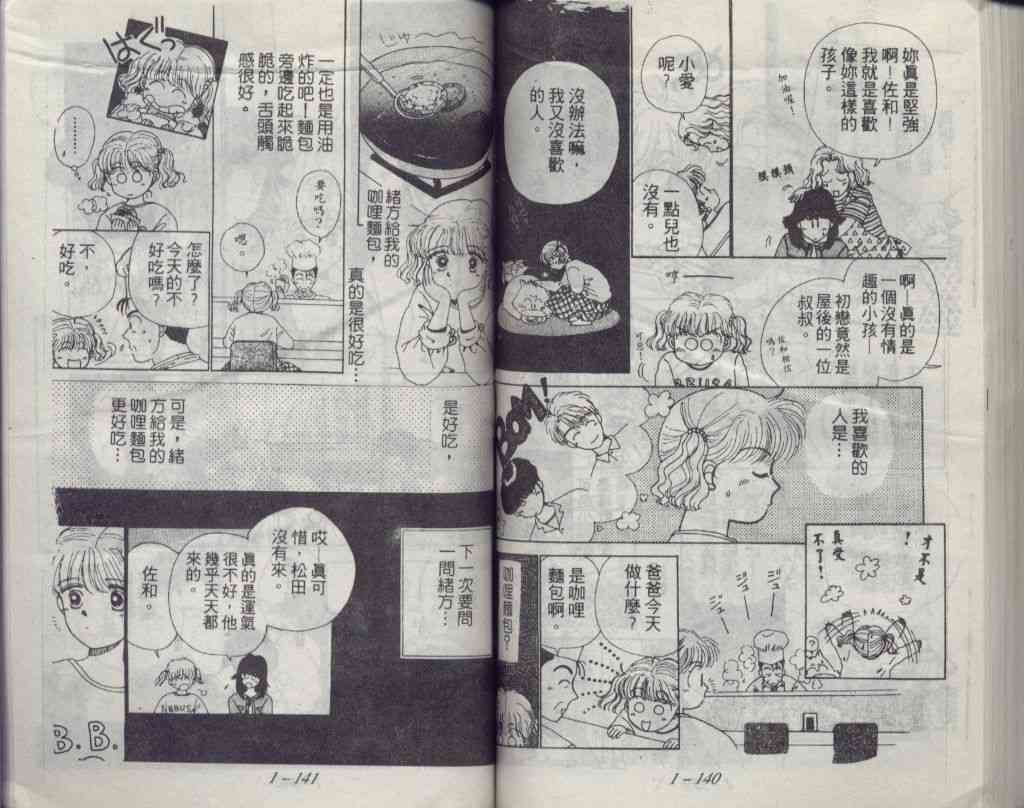 妳真是堅強
啊！佐和！
我就是喜歡
像妳這樣的
孩子。
加油喔！
摸摸頭
小愛
呢？
一點兒也
沒有。
沒辦法嘛，
我又沒喜歡
的人。
啊—真的是
一個沒有情
趣的小孩—
初戀竟然是
屋後的一位
叔叔。
哼
可惡！
BRUSA
我喜歡的
人是…
BOM!
才不是
！
真愛
不了！
ジュー
ジュー
爸爸今天
做什麼？
是咖哩
麵包啊。
咖哩
麵包？
1－140
じゅー
緒方給我的
咖哩麵包，
真的是很好吃…
一定也是用油
炸的吧！麵包
旁邊吃起來脆
脆的，舌頭觸
感很好。
要吃嗎？
嗯。
ぱくっ
………
怎麼了？
今天的不
好吃嗎？
不，
好吃。
是好吃，
可是，緒
方給我的
咖哩麵包
更好吃…
下一次要問
一問緒方…
哎—真可
惜，松田
沒有來。
真的是運氣
很不好，他
幾乎天天都
來的。
佐和。
NABUSA
B.B.
1－141